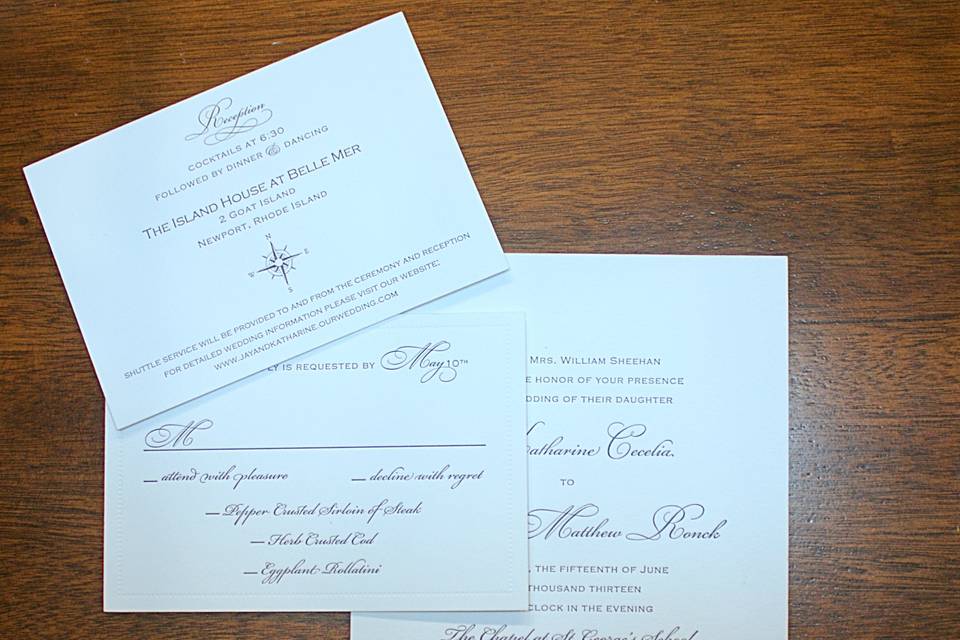 Reception
COCKTAILS AT 6:30
FOLLOWED BY DINNER & DANCING
THE ISLAND HOUSE AT BELLE MER
2 GOAT ISLAND
NEWPORT, RHODE ISLAND
N
W E
S
SHUTTLE SERVICE WILL BE PROVIDED TO AND FROM THE CEREMONY AND RECEPTION
FOR DETAILED WEDDING INFORMATION PLEASE VISIT OUR WEBSITE:
WWW.JAYANDKATHARINE.OURWEDDING.COM
LY IS REQUESTED BY May 10TH
M
attend with pleasure decline with regret
Pepper Crusted Sirloin of Steak
Herb Crusted Cod
Eggplant Rollatini
MRS. WILLIAM SHEEHAN
E HONOR OF YOUR PRESENCE
DDING OF THEIR DAUGHTER
atharine Cecelia
TO
Matthew Ronck
, THE FIFTEENTH OF JUNE
THOUSAND THIRTEEN
CLOCK IN THE EVENING
The Chapel at St. George's School